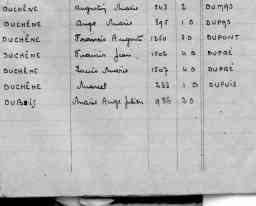 DUCHÊNE Augustin Marie 343 2 DUMAS
DUCHÊNE Ange Marie 395 1.0 DUPAS
DUCHÊNE Francois August 1360 8.0 DUPONT
DUCHÊNE Francis Jean 1506 4.0 DUPRÉ
DUCHÊNE Louis Marie 1507 4.0 DUPRÉ
DUCHÊNE Marcel 233 1.0 DUPUIS
DUBOIS Marie Ange 936 2.0